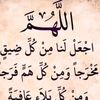 اللَّهُمَّ
اجْعَلْ لَنَا مِنْ كُلِّ ضِيقٍ
مَخْرَجاً وَمِنْ كُلِّ هَمٍّ فَرَجاً
وَمِنْ كُلِّ بَلَاءٍ عَافِيَةً